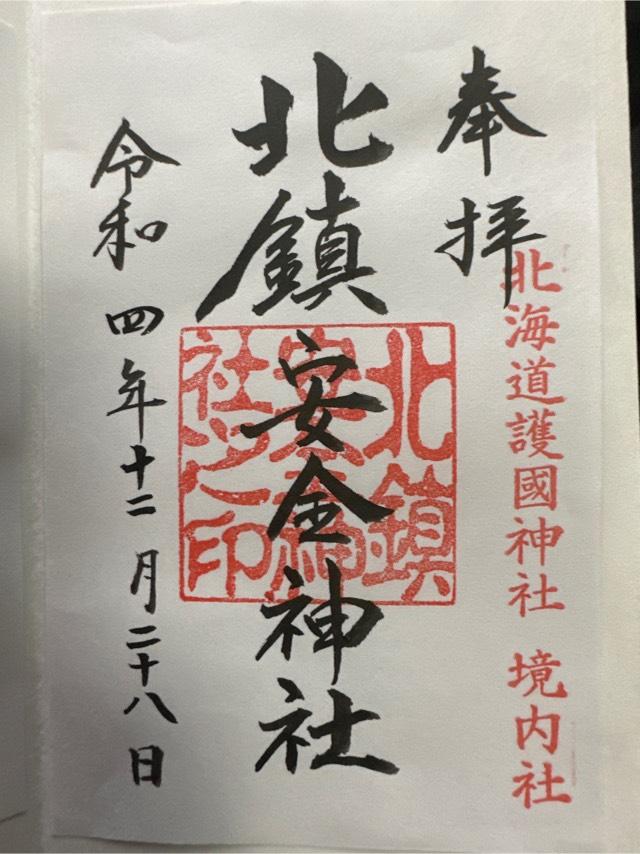 奉拝
北海道護國神社 境内社
北鎮安全神社
北鎮
社之印
令和四年十二月二十八日